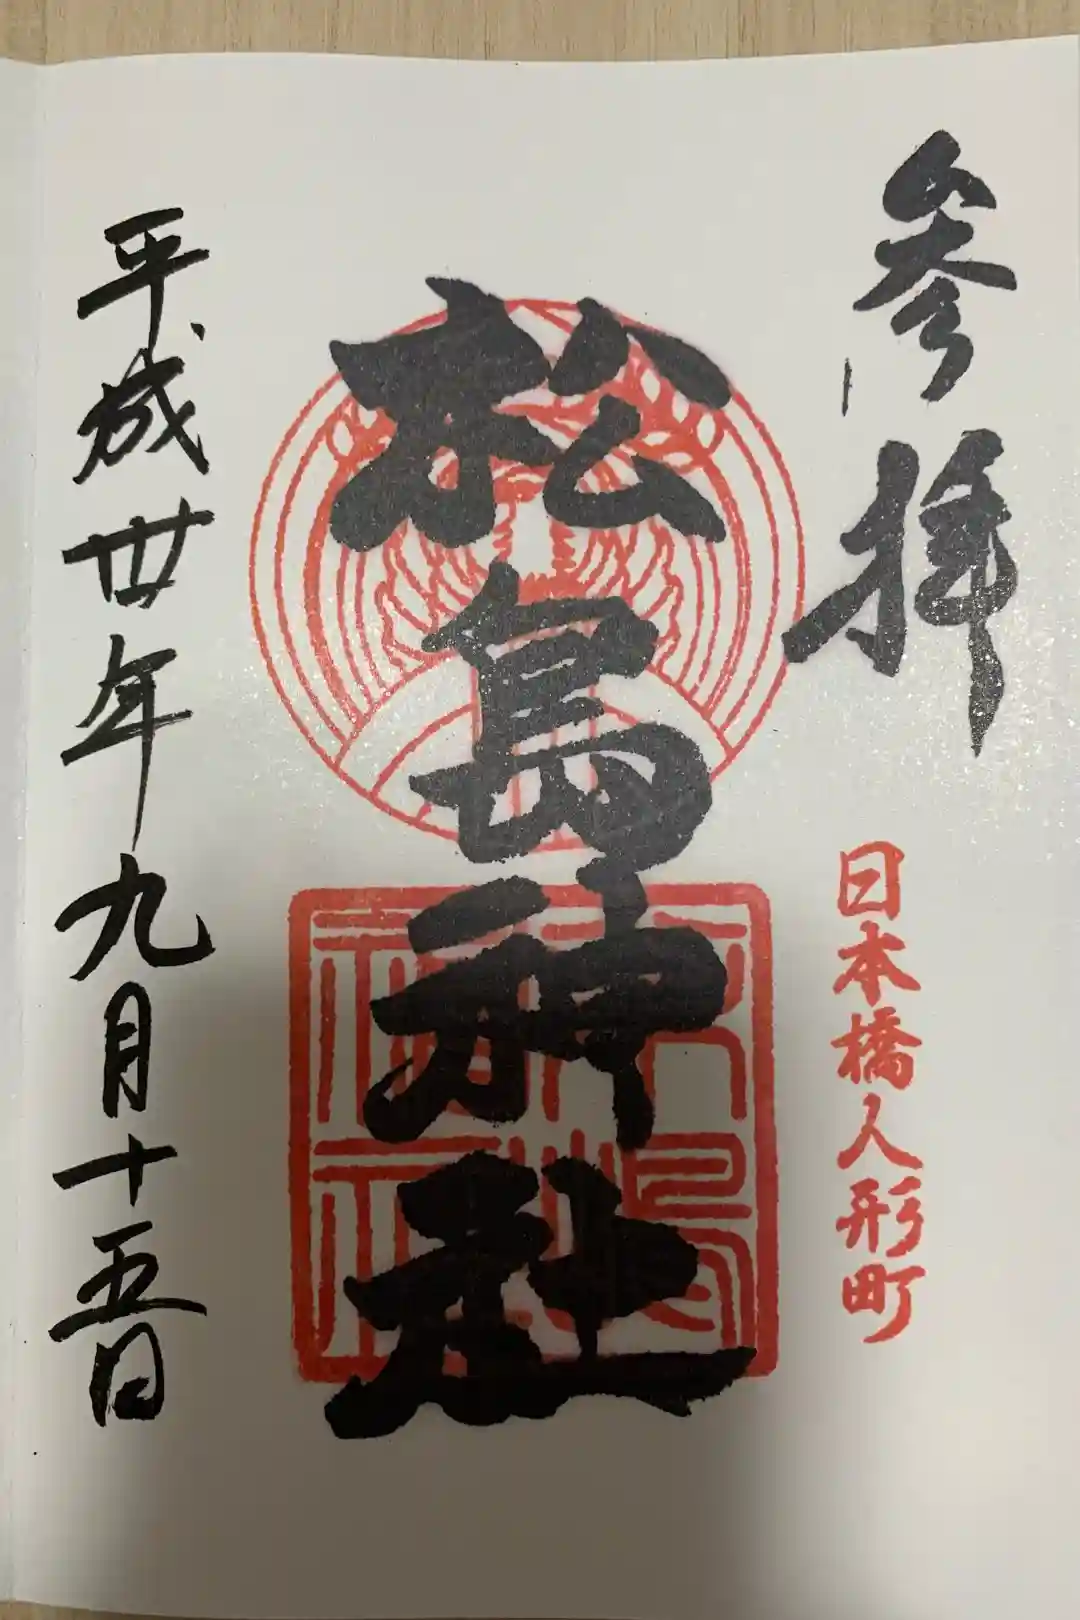 参拝
日本橋人形町
松島神社
平成廿年九月十五日